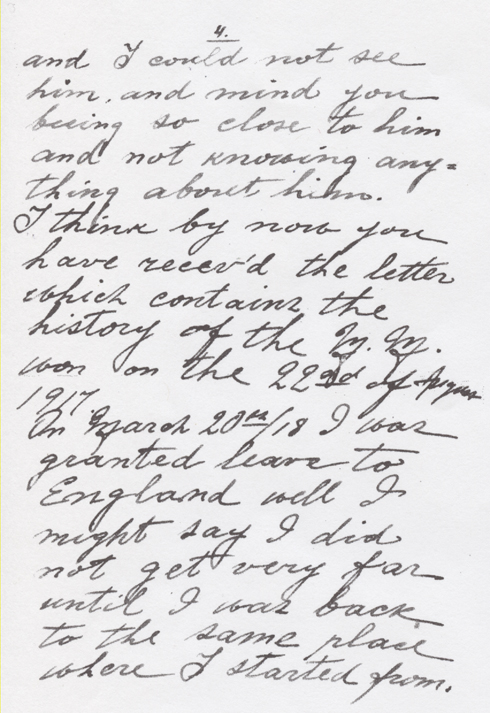 4.
and I could not see
him, and mind you
being so close to him
and not knowing any=
thing about him.
I think by now you
have recev'd the letter
which contains the
history of the M.M.
won on the 22nd of August
1917
On March 20th/18 I was
granted leave to
England well I
might say I did
not get very far
until I was back
to the same place
where I started from.